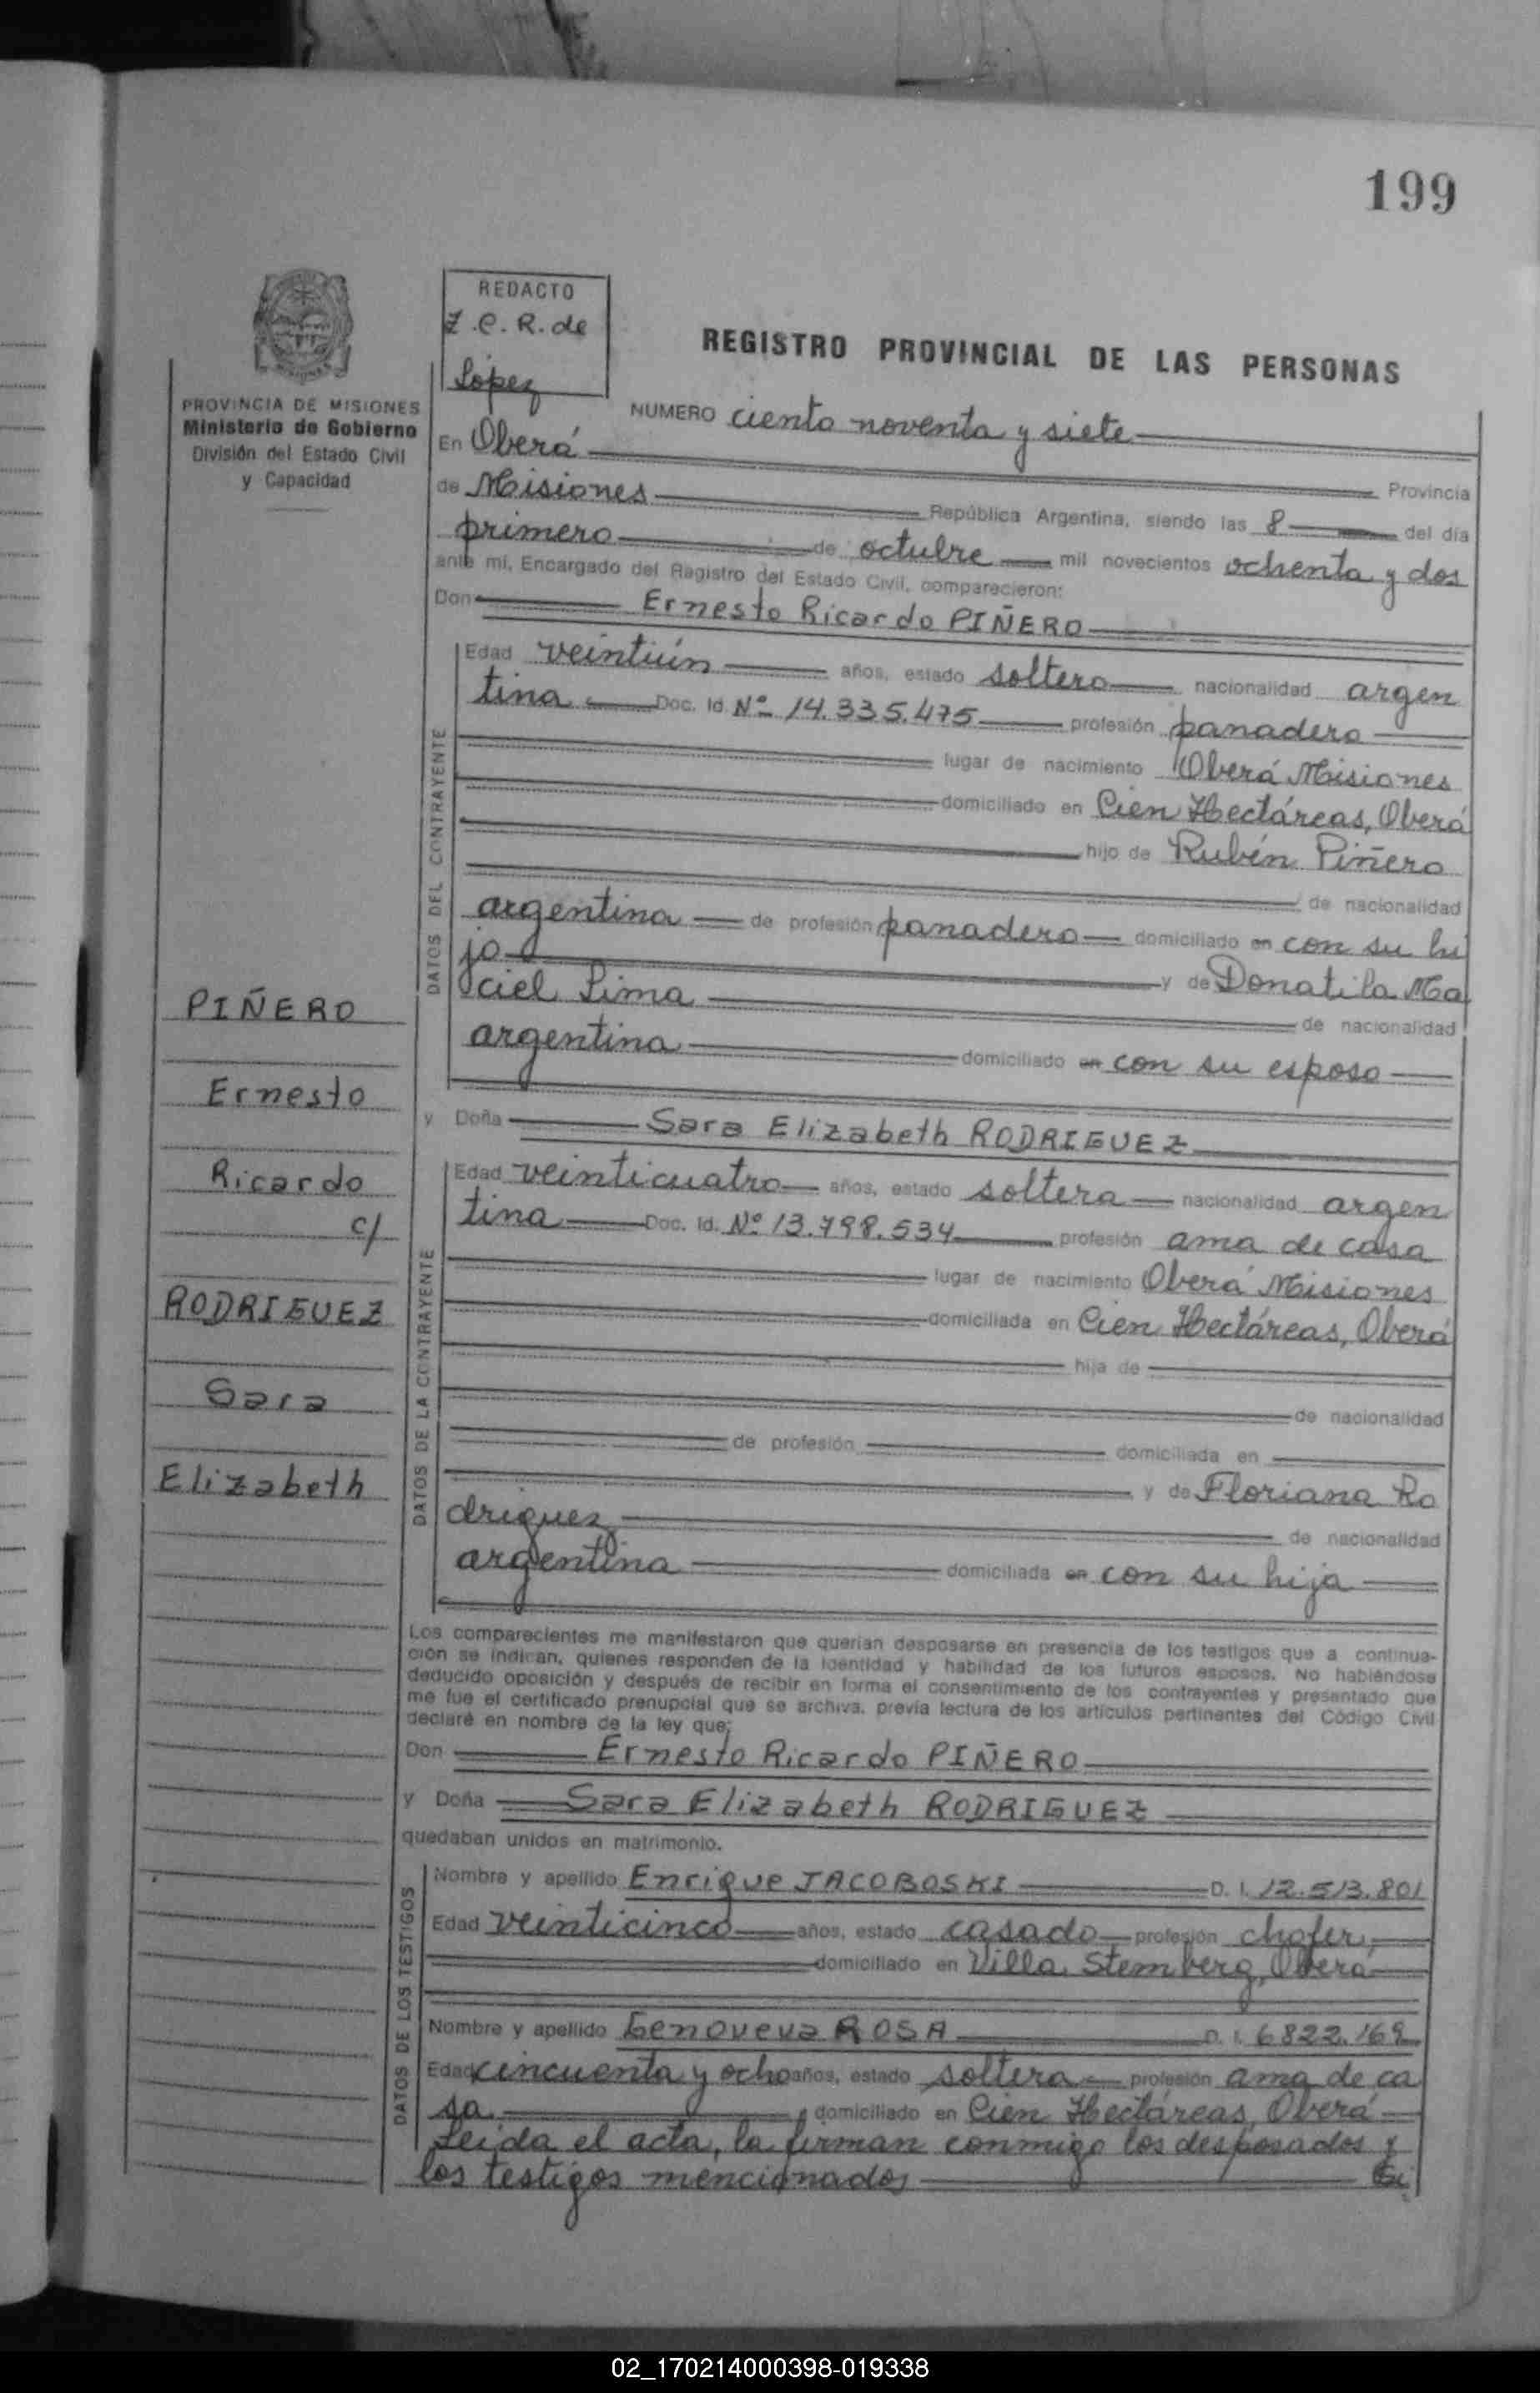 199
REDACTO
Z.C.R. de
López
REGISTRO PROVINCIAL DE LAS PERSONAS
PROVINCIA DE MISIONES
Ministerio de Gobierno
División del Estado Civil
y Capacidad
NUMERO ciento noventa y siete
En Oberá Provincia
de Misiones República Argentina, siendo las 8 del día
primero de octubre mil novecientos ochenta y dos
ante mí, Encargado del Registro del Estado Civil, comparecieron:
Don Ernesto Ricardo PIÑERO
DATOS DEL CONTRAYENTE
Edad veintiún años, estado soltero nacionalidad argen
tina Doc. Id. Nº 14.335.475 profesión panadero
lugar de nacimiento Oberá Misiones
domiciliado en Cien Hectáreas, Oberá
hijo de Rubén Piñero
de nacionalidad
argentina de profesión panadero domiciliado en con su hi
jo y de Donatila Ma
ciel Lima de nacionalidad
argentina domiciliado en con su esposo
y Doña Sara Elizabeth RODRIGUEZ
DATOS DE LA CONTRAYENTE
Edad veinticuatro años, estado soltera nacionalidad argen
tina Doc. Id. Nº 13.798.534 profesión ama de casa
lugar de nacimiento Oberá Misiones
domiciliada en Cien Hectáreas, Oberá
hija de
de nacionalidad
de profesión domiciliada en
y de Floriana Ro
driguez de nacionalidad
argentina domiciliada en con su hija
PIÑERO
Ernesto
Ricardo
c/
RODRIGUEZ
Sara
Elizabeth
Los comparecientes me manifestaron que querían desposarse en presencia de los testigos que a continua-
ción se indican, quienes responden de la identidad y habilidad de los futuros esposos. No habiéndose
deducido oposición y después de recibir en forma el consentimiento de los contrayentes y presentado que
me fue el certificado prenupcial que se archiva, previa lectura de los artículos pertinentes del Código Civil
declaré en nombre de la ley que;
Don Ernesto Ricardo PIÑERO
y Doña Sara Elizabeth RODRIGUEZ
quedaban unidos en matrimonio.
DATOS DE LOS TESTIGOS
Nombre y apellido Enrique JACOBOSKI D. I. 12.513.801
Edad veinticinco años, estado casado profesión chofer,
domiciliado en Villa Stemberg, Oberá
Nombre y apellido Genoveva ROSA D. I. 6822.169
Edad cincuenta y ocho años, estado soltera profesión ama de ca
sa domiciliado en Cien Hectáreas, Oberá
Leida el acta, la firman conmigo los desposados y
los testigos mencionados
02_170214000398-019338